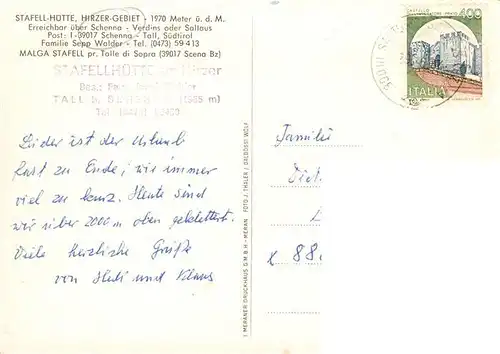 STAFELL-HÜTTE, HIRZER-GEBIET - 1970 Meter ü. d. M.
Erreichbar über Schenna - Verdins oder Saltaus
Post: I-39017 Schenna - Tall, Südtirol
Familie Sepp Walder - Tel. (0473) 59 413
MALGA STAFELL pr. Talle di Sopra (39017 Scena Bz)
STAFELLHÜTTE am Hirzer
Bes.: Fam.
TALL b. m)
Tel.
Leider ist der Urlaub
fast zu Ende, wie immer
viel zu kurz. Heute sind
wir über 2000 m oben geklettert.
Viele herzliche Grüße
von Hedi und Klaus
I MERANER DRUCKHAUS G.M.B.H - MERAN FOTO J. THALER
CASTELLO
400
ITALIA
Familie